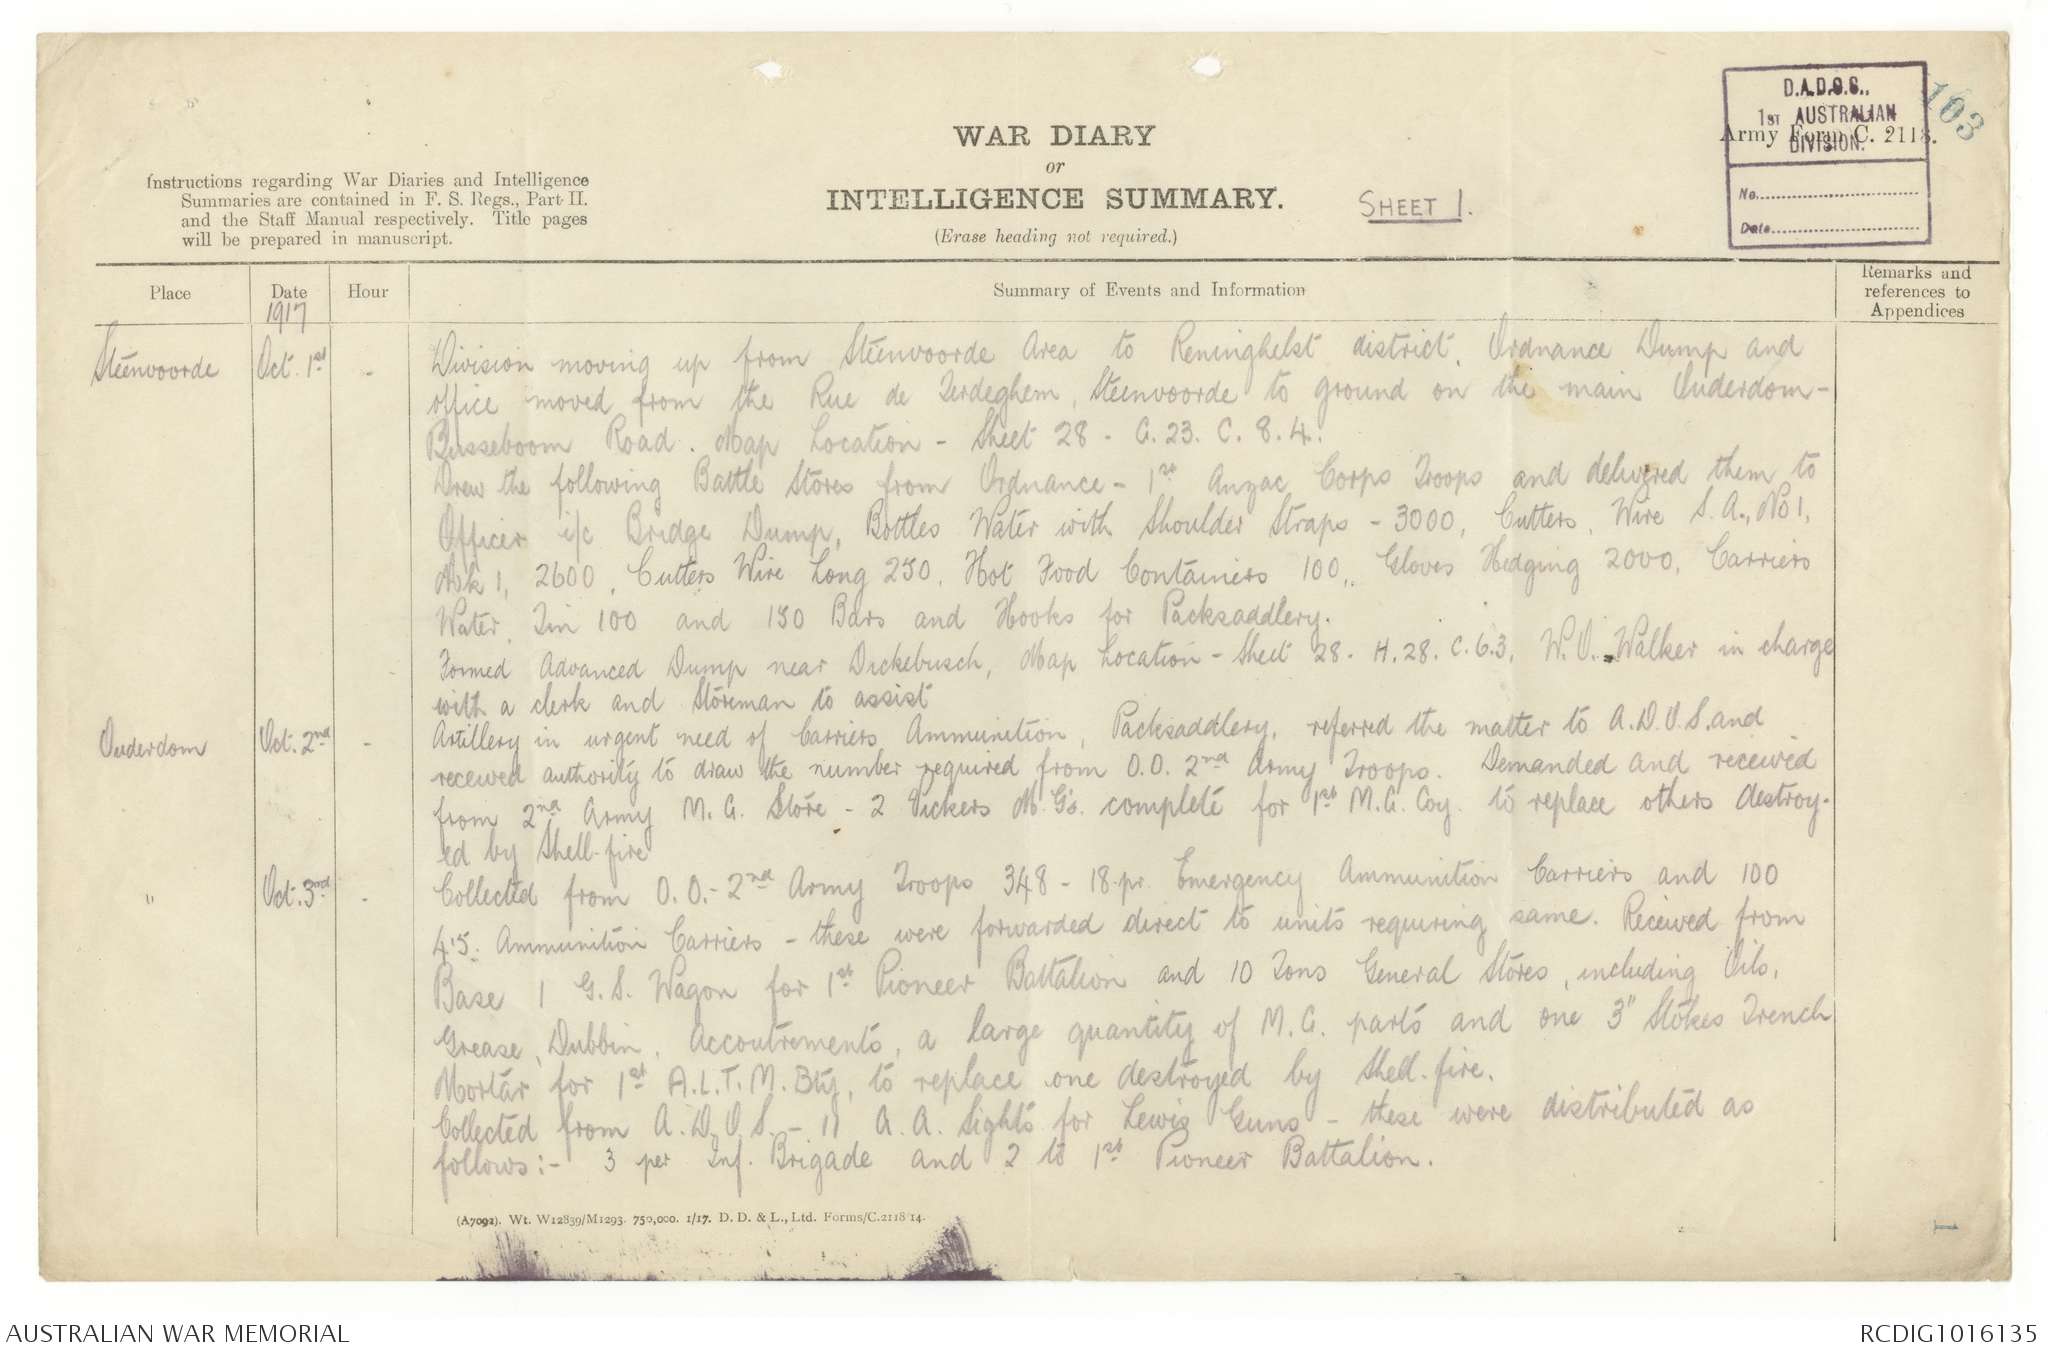 D.A.D.O.S.,
1ST AUSTRALIAN
DIVISION.
No.
Date
103
Army Form C. 2118.
WAR DIARY
or
INTELLIGENCE SUMMARY.
(Erase heading not required.)
SHEET 1.
Instructions regarding War Diaries and Intelligence
Summaries are contained in F. S. Regs., Part II.
and the Staff Manual respectively. Title pages
will be prepared in manuscript.
Place Date Hour Summary of Events and Information Remarks and references to Appendices
1917
Steenvoorde Oct. 1st - Division moving up from Steenvoorde Area to Reninghelst district. Ordnance Dump and
office moved from the Rue de Terdeghem, Steenvoorde to ground on the main Ouderdom-
Busseboom Road. Map Location - Sheet 28 - G. 23. C. 8. 4.
Drew the following Battle Stores from Ordnance - 1st Anzac Corps Troops and delivered them to
Officer i/c Bridge Dump, Bottles Water with Shoulder Straps - 3000, Cutters, Wire S.A., No 1,
Mk 1, 2600, Cutters Wire Long 250, Hot Food Containers 100, Gloves Hedging 2000, Carriers
Water, Tin 100 and 150 Bars and Hooks for Packsaddlery.
Formed Advanced Dump near Dickebusch, Map Location - Sheet 28. H. 28. C. 6.3, W.O. Walker in charge
with a clerk and Storeman to assist
Ouderdom Oct. 2nd - Artillery in urgent need of Carriers Ammunition, Packsaddlery, referred the matter to A.D.O.S. and
received authority to draw the number required from O.O. 2nd Army Troops. Demanded and received
from 2nd Army M.G. Store - 2 Vickers M.G's. complete for 1st M.G. Coy. to replace others destroy-
ed by Shell-fire
" Oct. 3rd - Collected from O.O. - 2nd Army Troops 348 - 18.pr. Emergency Ammunition Carriers and 100
4.5. Ammunition Carriers - these were forwarded direct to units requiring same. Received from
Base 1 G.S. Wagon for 1st Pioneer Battalion and 10 Tons General Stores, including Oils,
Grease, Dubbin, Accoutrements, a large quantity of M.G. parts and one 3" Stokes Trench
Mortar for 1st A.L.T.M. Bty, to replace one destroyed by Shell-fire.
Collected from A.D.O.S. - 11 A.A. Sights for Lewis Guns - these were distributed as
follows:- 3 per Inf. Brigade and 2 to 1st Pioneer Battalion.
(A7092). Wt. W12839/M1293. 750,000. 1/17. D. D. & L., Ltd. Forms/C.2118/14.
1
AUSTRALIAN WAR MEMORIAL
RCDIG1016135